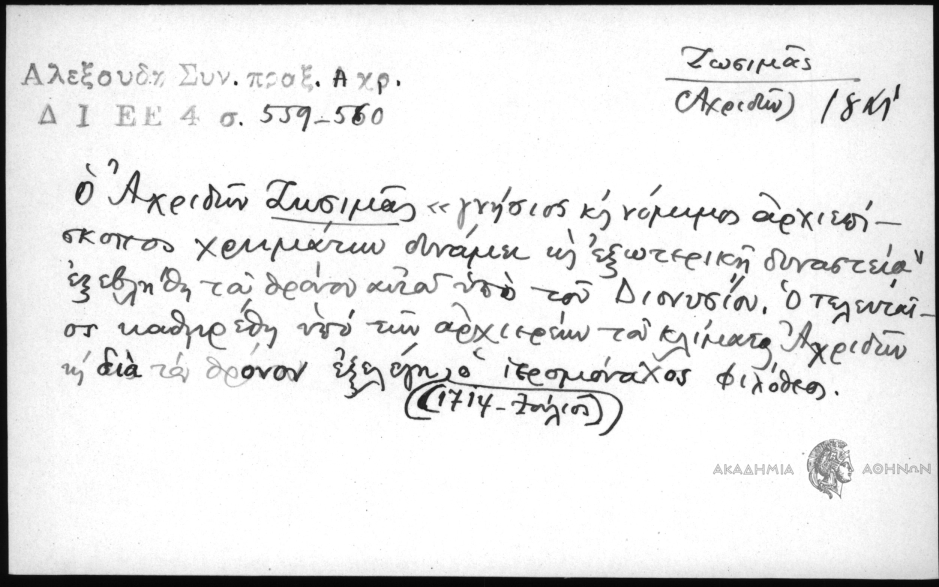 Αλεξουδη Συν. πραξ. Αχρ.
Δ Ι ΕΕ 4 σ. 559-560
Ζωσιμᾶς
(Ἀχριδῶν) 18
ὁ Ἀχριδῶν Ζωσιμᾶς «γνήσιος κὴ νόμιμος ἀρχιεπί-
σκοπος χρημάτων δυνάμει κὴ ἐξωτερικῇ δυναστείᾳ"
ἐξεβλήθη τοῦ θρόνου αὐτοῦ ὑπὸ τοῦ Διονυσίου. Ὁ τελευταῖ-
ος καθῃρέθη ὑπὸ τῶν ἀρχιερέων τοῦ κλίματος Ἀχριδῶν
κὴ διὰ τὸν θρόνον ἐξελέγη ὁ ἱερομόναχος Φιλόθεος.
(1714-Ἰούλιος)
ΑΚΑΔΗΜΙΑ ΑΘΗΝΩΝ